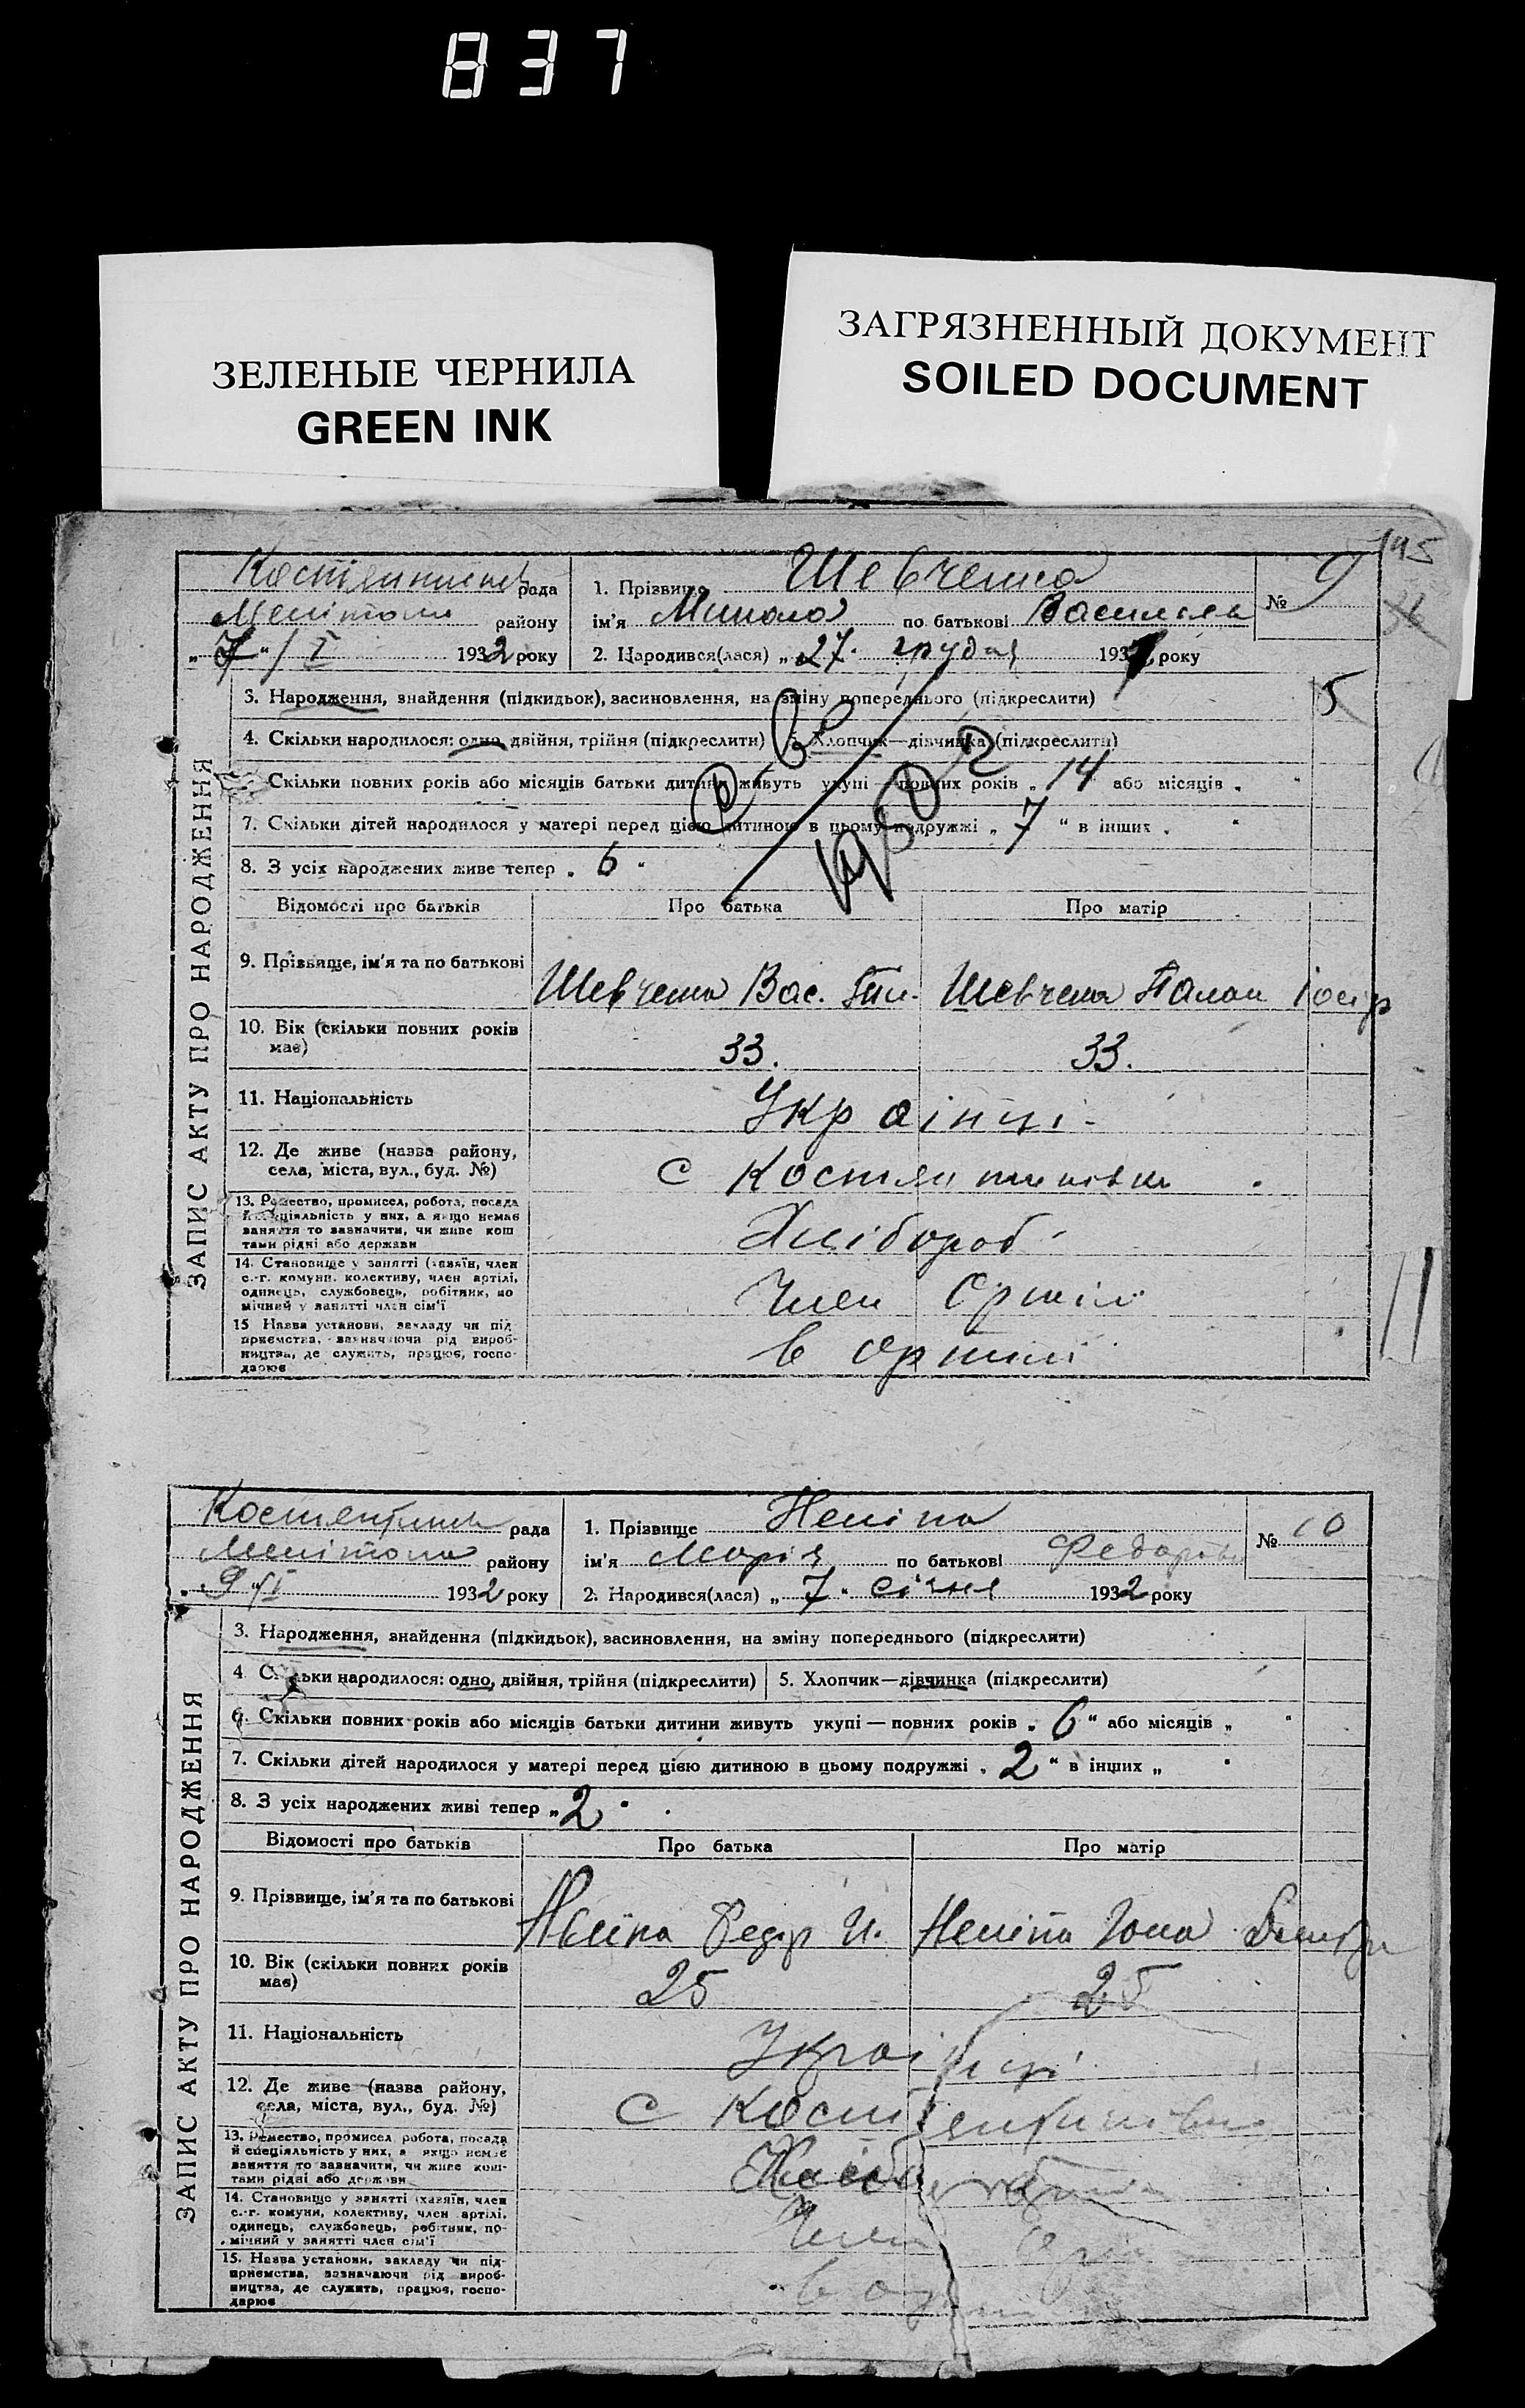 837
ЗЕЛЕНЫЕ ЧЕРНИЛА
GREEN INK
ЗАГРЯЗНЕННЫЙ ДОКУМЕНТ
SOILED DOCUMENT
195
рада
району
„ 7 “ / I 1932 року
1. Прізвище Шевченко
ім'я Микола по батькові
2. Народився(лася) „ 27 “ грудня 193 року
№ 9
ЗАПИС АКТУ ПРО НАРОДЖЕННЯ
3. Народження, знайдення (підкидьок), засиновлення, на зміну попереднього (підкреслити)
5
4. Скільки народилося: одно, двійня, трійня (підкреслити) 5. Хлопчик—дівчинка (підкреслити)
Скільки повних років або місяців батьки дитини живуть укупі повних років „ 14 “ або місяців „
7. Скільки дітей народилося у матері перед цією дитиною в цьому подружжі „ 7 “ в інших „ “
8. З усіх народжених живе тепер „ 6 “
Відомості про батьків Про батька Про матір
9. Прізвище, ім'я та по батькові
Шевченко Вас. Шевченко
10. Вік (скільки повних років
має)
33. 33.
11. Національність
Українці
12. Де живе (назва району,
села, міста, вул., буд. №)
с
13. Ремество, промисел, робота, посада
й спеціяльність у них, а якщо немає
заняття то зазначити, чи живе кош
тами рідні або держави
Хлібороб
14. Становище у занятті (хазяїн, член
с.-г. комуни, колективу, член артілі,
одинець, службовець, робітник, по
мічний у занятті член сім'ї
Член Артілі
15 Назва установи, закладу чи під
приємства, зазначаючи рід вироб-
ництва, де служить, працює, госпо-
дарює
в артілі
рада
району
„ 9 “ I 1932 року
1. Прізвище Неліпа
ім'я Марія по батькові
2. Народився(лася) „ 7 “ січня 1932 року
№ 10
ЗАПИС АКТУ ПРО НАРОДЖЕННЯ
3. Народження, знайдення (підкидьок), засиновлення, на зміну попереднього (підкреслити)
4. Скільки народилося: одно, двійня, трійня (підкреслити) 5. Хлопчик—дівчинка (підкреслити)
6. Скільки повних років або місяців батьки дитини живуть укупі — повних років „ 6 “ або місяців „ “
7. Скільки дітей народилося у матері перед цією дитиною в цьому подружжі „ 2 “ в інших „ “
8. З усіх народжених живі тепер „ 2 “
Відомості про батьків Про батька Про матір
9. Прізвище, ім'я та по батькові
Неліпа Федір И. Неліпа
10. Вік (скільки повних років
має)
25 25
11. Національність
Українці
12. Де живе (назва району,
села, міста, вул., буд. №)
с
13. Ремество, промисел робота, посада
й спеціяльність у них, а якщо немає
заняття то зазначити, чи живе кош-
тами рідні або держави
14. Становище у занятті (хазяїн, член
с.-г. комуни, колективу, член артілі,
одинець, службовець, робітник, по-
мічний у занятті член сім'ї
Член
15. Назва установи, закладу чи під-
приємства, зазначаючи рід вироб-
ництва, де служить, працює, госпо-
дарює
в